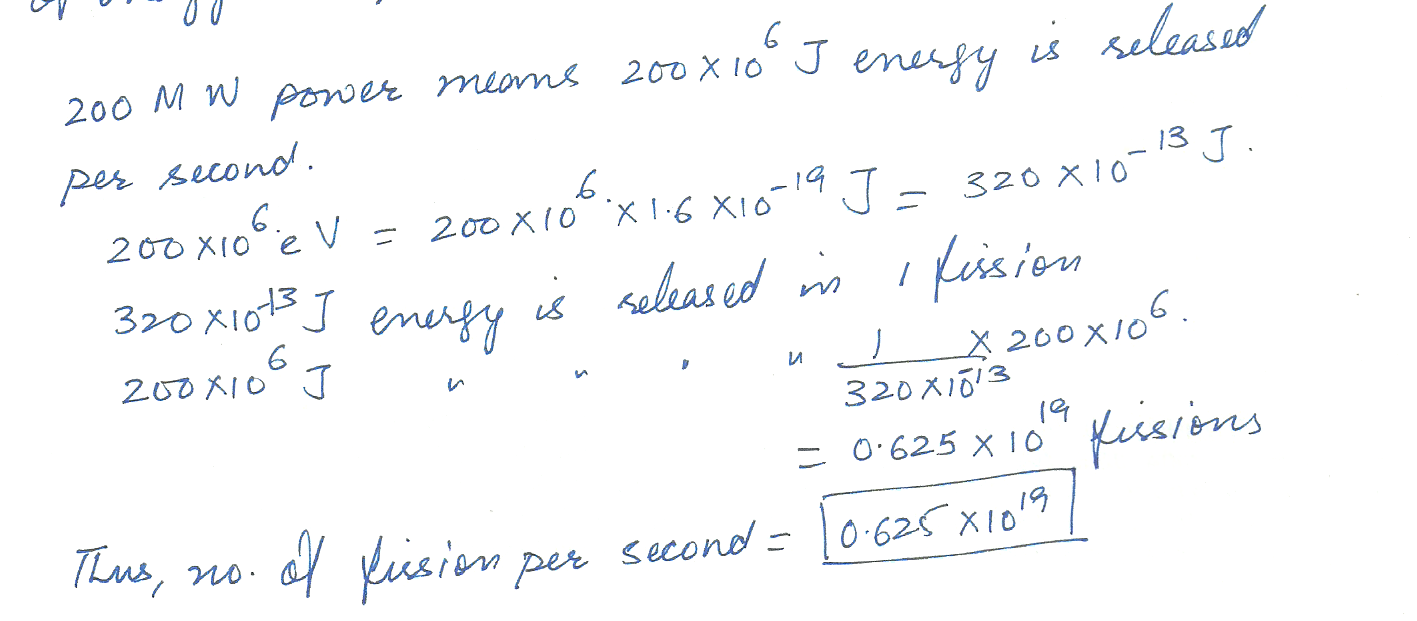 200 MW power means 200 × 10⁶ J energy is released
per second.
200 × 10⁶ eV = 200 × 10⁶ × 1.6 × 10⁻¹⁹ J = 320 × 10⁻¹³ J.
320 × 10⁻¹³ J energy is released in 1 fission
200 × 10⁶ J " " " " 1/(320 × 10⁻¹³) × 200 × 10⁶.
= 0.625 × 10¹⁹ fissions
Thus, no. of fission per second = 0.625 × 10¹⁹